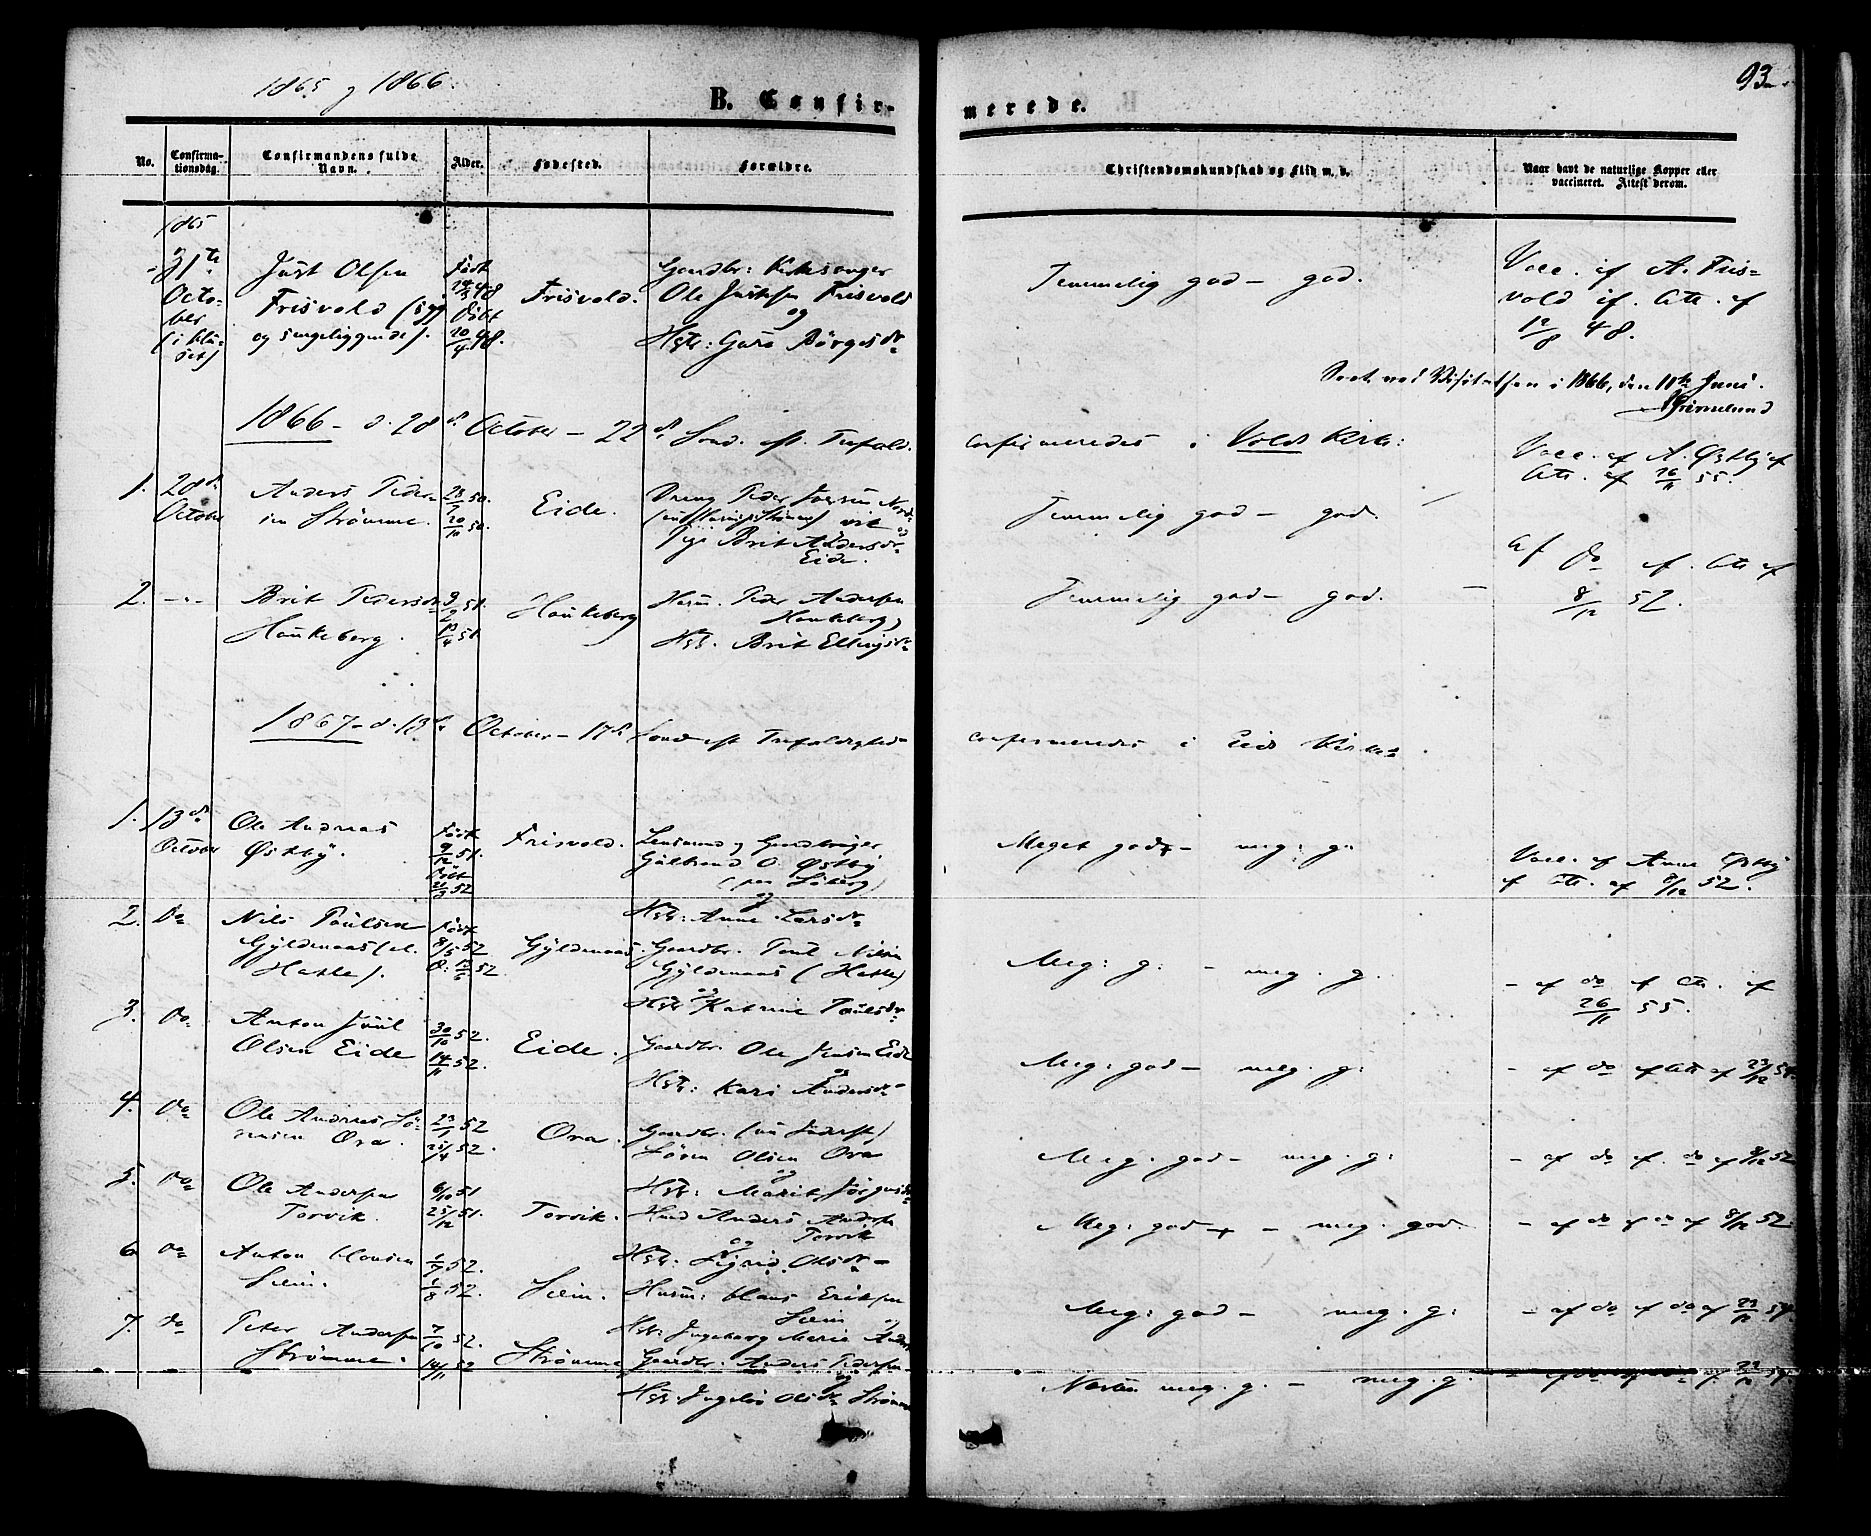 1865 og 1866.
93
B. Confirmerede.
No.
Confirmationsdag.
Confirmandens fulde Navn.
Alder.
Fødested.
Forældre.
Christendomskundskab og Flid m. v.
Naar havt de naturlige Kopper eller vaccineret. Attest derom.
1865
31te Octo-
ber
Just Olsen
Frisvold (syg
og sengeliggende).
Født
48
Døbt
10/4 48.
Frisvold.
Gaardbr: Kirkesanger
Ole Justsen Frisvold
og
Hstr: Guro Børgesdr
Temmelig god – god.
Vacc. af A. Fris-
vold if. Att. af
12/8 48.
Seet ved Visitatsen i 1866, den 11te Juni.
Grimelund
1866 – d. 28de October – 22de Sønd. eft. Trefold.
confirmeredes i Volds Kirke:
1.
28de
October
Anders Peder-
sen Strømme.
50.
20/10 50.
Eide.
og
pige Brit Andersdr
Eide.
Temmelig god – god.
Vacc. af A. Østby if
Att. af 26/11 55.
2.
Brit Pedersdr
Haukeberg.
9/2 51.
51.
Haukeberg
Husm. Peder Andersen
Haukeberg,
Hstr. Brit Ellingsdr
Temmelig god – god.
af do if. Att. af
8/12 52.
1867 – d. 13de October – 17de Sønd eft Trefoldighed –
confirmeredes i Eids Kirke.
1.
13de
October
Ole Andreas
Østby.
Født
9/12 51.
Døbt
21/3 52
Frisvold.
Lensmand og Gaardbruger
Gulbrand O. Østby
og
Hstr: Anne Larsdr
Meget god – meg: g.
Vacc. af Anne Østby
if Att. af 8/12 52.
2.
Do
Nils Paulsen
Gyldenaas (el.
Hatle).
Født
8/5 52
52.
Gyldenaas.
Gaardbr. Paul Nilsen
Gyldenaas (Hatle)
og
Hstr Katrine Paulsdr
Meg: g: – meg. g.
– af do if Att. af
26/11 55.
3.
Do.
Anton Juul
Olsen Eide
30/10 52.
14/11 52.
Eide.
Gaardbr. Ole Jensen Eide
og
Hstr: Kari Andersdr
Meg: god – meg. g:
– af do if Att. af 23/12 54.
4.
Do
Ole Andreas Sø-
rensen Ora.
52
25/4 52.
Ora.
Søren Olsen Ora
og
Hstr: Marit Jørgensdr
Meg: god – meg. g:
– af do if. do af 8/12 52
5.
Do
Ole Andersen
Torvik.
6/10 51
25/12 51.
Torvik.
Husmd Anders Andersen
Torvik
og
Hstr: Sigrid Olsdr –
Meg: god – meg. god.
– af do if do af 8/12 52.
6.
Do
Anton Hansen
Seim.
1/7 52.
1/8 52.
Seim.
Husm: Hans Eriksen
Seim og
Hstr: Ingeborg Marie
Meg: god – meg. g:
– af do if do af 23/12 54.
7.
Do
Peter Andersen
Strømme.
7/10 52.
14/11 52
Strømme
Gaardbr. Anders Pedersen
og
Hstr. Ingebor Olsdr Strømme
Næsten meg. g. – meg. g.
– af do if do af 23/12 54